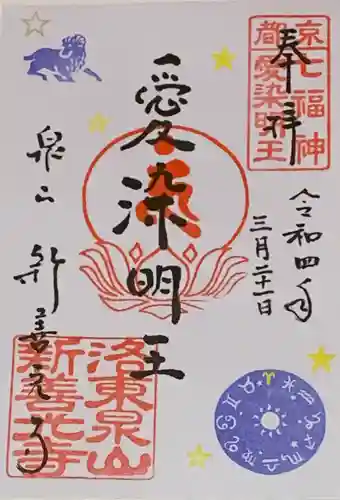 奉拝
京七福神
都愛染明王
愛染明王
令和四年
三月二十一日
泉山
新善光寺
洛東泉山
新善光寺